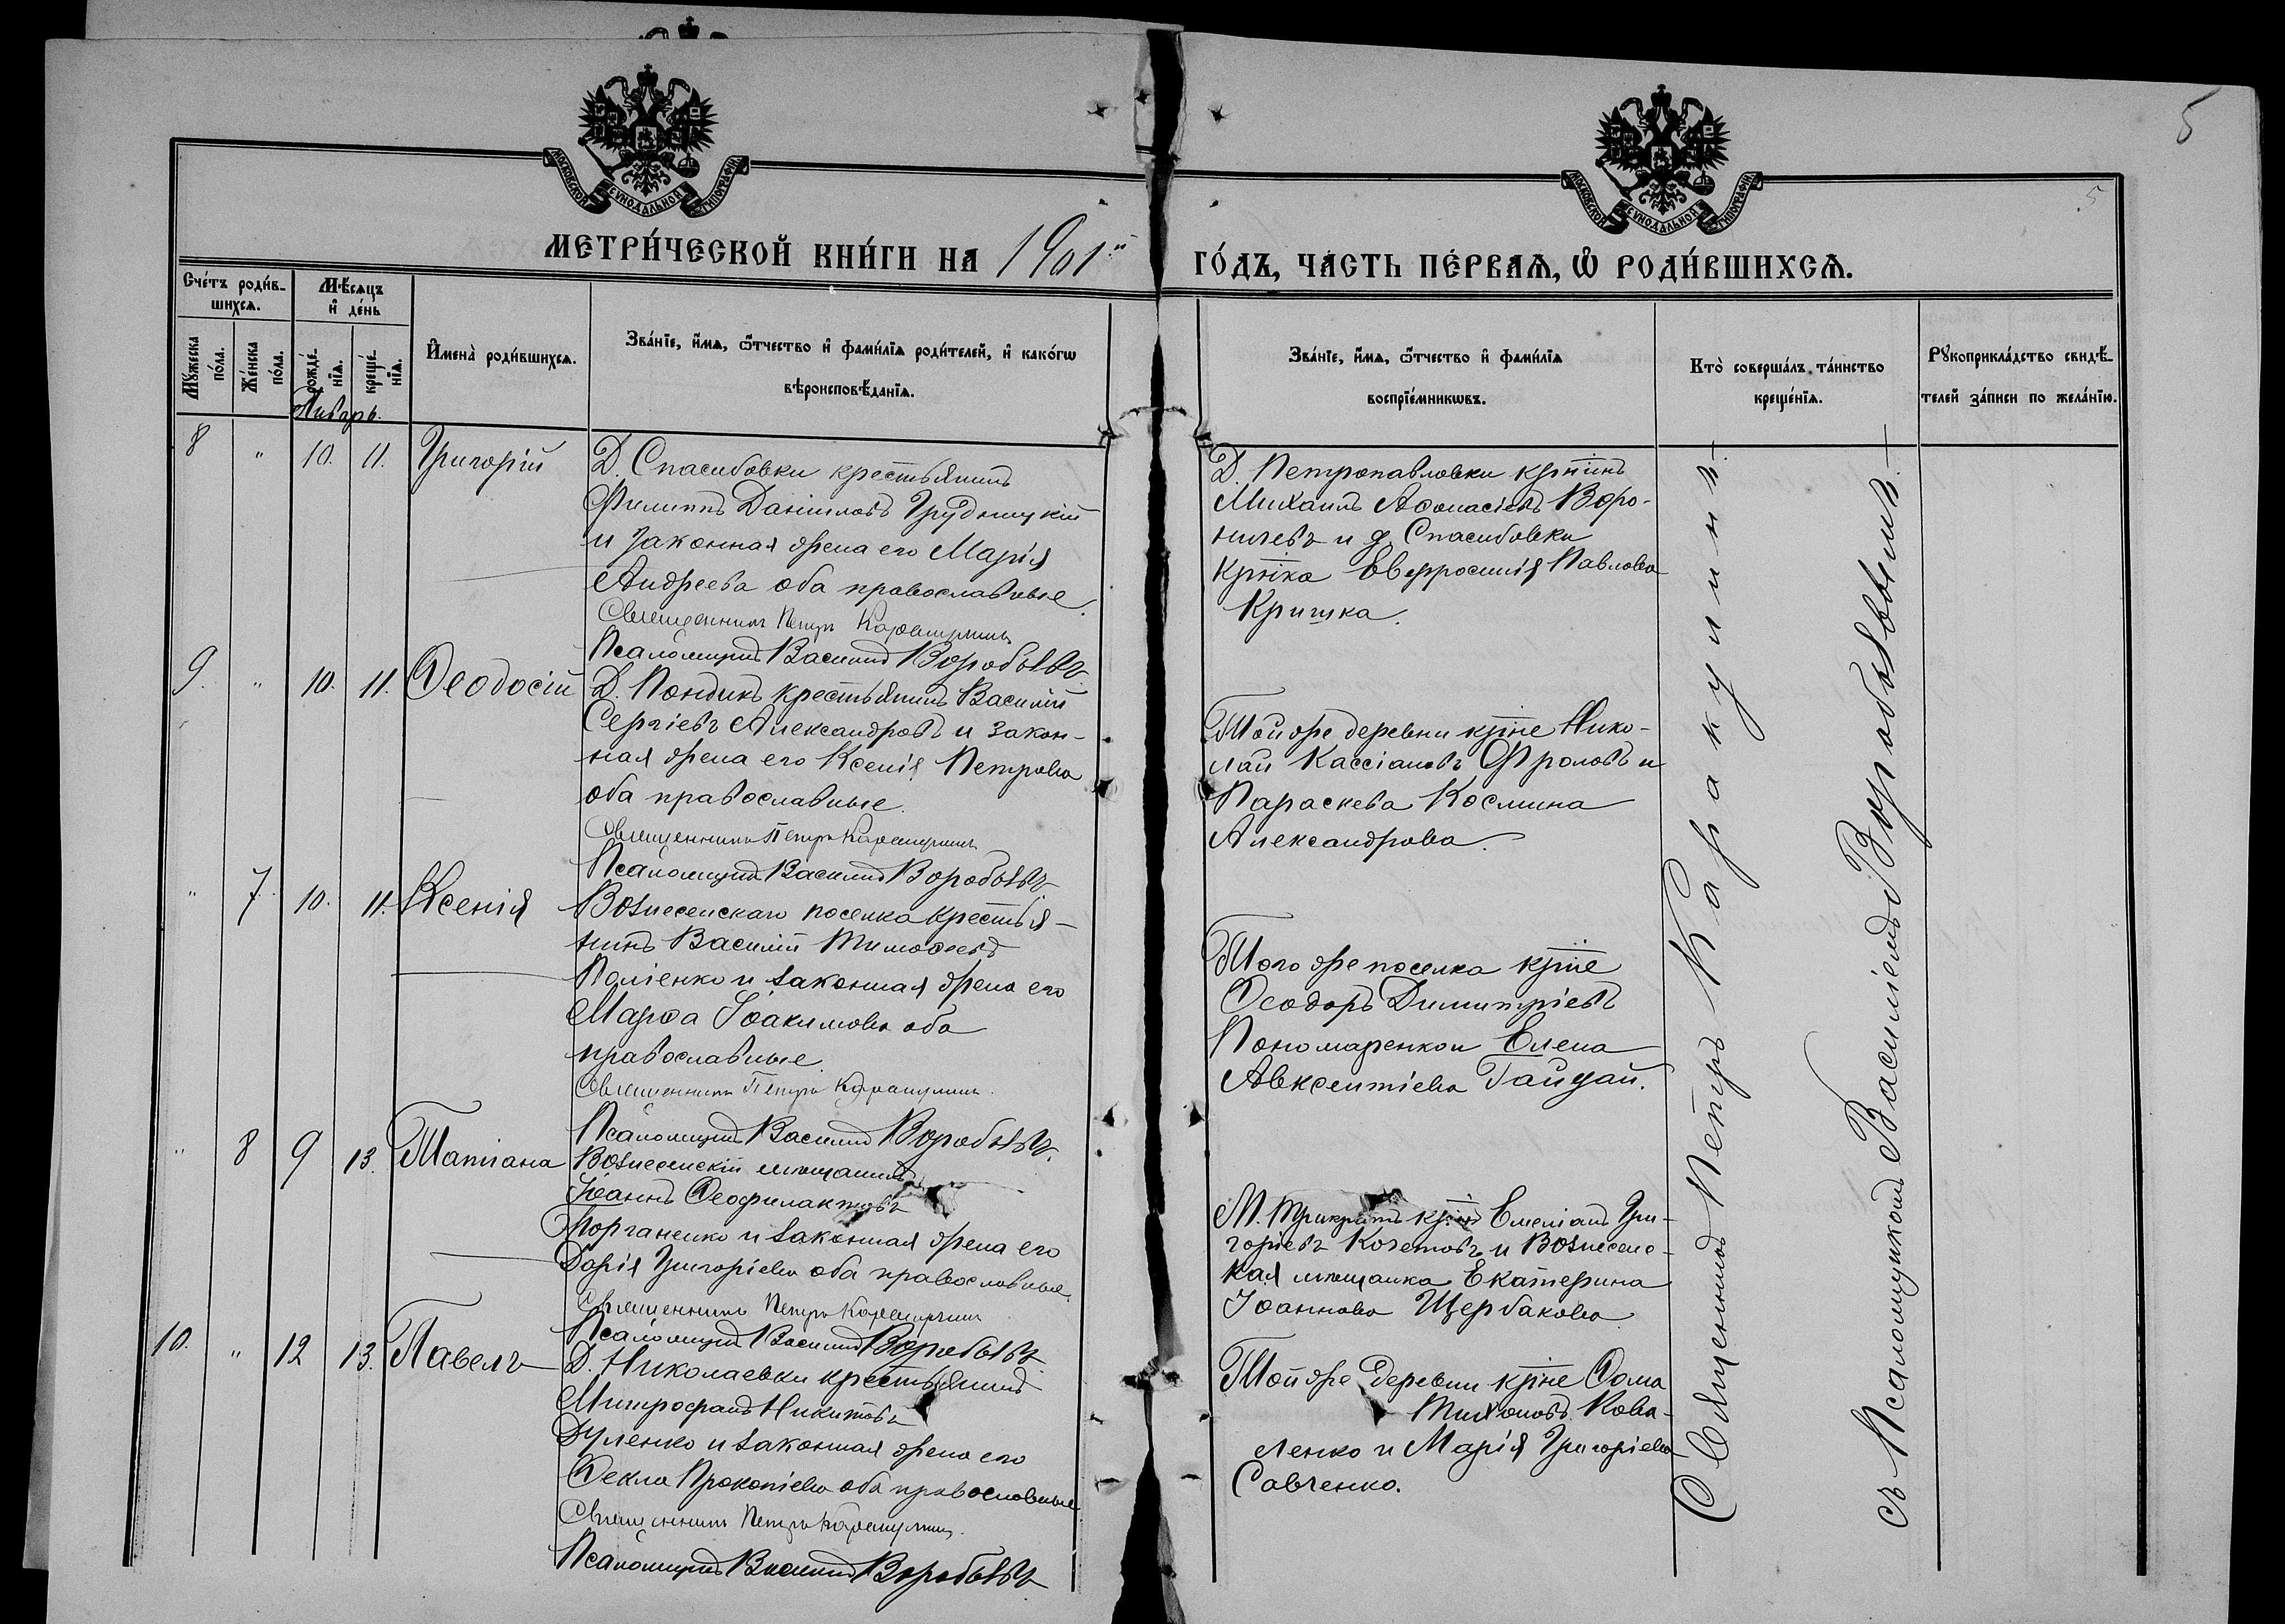 5
5
МОСКОВСКОЙ СѴНОДАЛЬНОЙ ТИПОГРАФІИ
МОСКОВСКОЙ СѴНОДАЛЬНОЙ ТИПОГРАФІИ
МЕТРИ́ЧЕСКОЙ КНИ́ГИ НА 1901й ГО́ДЪ, ЧА́СТЬ ПЕ́РВАѦ, Ѡ҆ РОДИ́ВШИХСѦ.
Сче́тъ роди́в-
шихсѧ.
Мꙋ́жеска
по́ла.
Же́нска
по́ла.
Мѣ́сѧцъ
и҆ де́нь
рожде́-
нїѧ.
креще́-
нїѧ.
И҆мена̀ роди́вшихсѧ.
Зва́нїе, и҆́мѧ, ѻ҆́тчество и҆ фами́лїѧ роди́телей, и҆ како́гѡ
вѣроисповѣ́данїѧ.
Зва́нїе, и҆́мѧ, ѻ҆́тчество и҆ фами́лїѧ
воспрїе́мникѡвъ.
Кто̀ соверша́лъ та́инство
креще́нїѧ.
Рꙋкоприкла́дство свидѣ́-
телей за́писи по жела́нїю.
Январь.
8 " 10. 11. Григорій
Д. Спасибовки крестьянинъ
Филиппъ Даніиловъ Грудницкій
и законная жена его Марія
Андреева оба православные.
Священникъ Петръ Каракулинъ
Псаломщикъ Василій Воробьевъ
Д. Петропавловки кр҃нинъ
Михаилъ Аѳонасіевъ Воро-
ничевъ и д. Спасибовки
кр҃нка Евфросинія Павлова
Кришка.
9. " 10. 11. Ѳеодосій
Д. Пондикъ крестьянинъ Василій
Сергіевъ Александровъ и закон-
ная жена его Ксенія Петрова
оба православные.
Священникъ Петръ Каракулинъ
Псаломщикъ Василій Воробьевъ
Той же деревни кр҃не Нико-
лай Кассіановъ Фроловъ и
Параскева Космина
Александрова.
" 7. 10. 11. Ксенія
Вознесенскаго поселка крестья-
нинъ Василій Тимоѳеевъ
Поліенко и законная жена его
Марѳа Іоакимова оба
православные.
Священникъ Петръ Каракулинъ.
Псаломщикъ Василій Воробьевъ.
Того же поселка кр҃не
Ѳеодоръ Димитріевъ
Пономаренко и Елена
Авксентіева Гайдай.
" 8 9 13. Татіана
Вознесенскій мѣщанинъ
Іоаннъ Ѳеофилактовъ
Морганенко и законная жена его
Дарія Григоріева оба православные.
Священникъ Петръ Каракулинъ
Псаломщикъ Василій Воробьевъ
М. Трикратъ кр҃нъ Емеліанъ Гри-
горіевъ Кочетовъ и Вознесенс-
кая мѣщанка Екатерина
Іоаннова Щербакова
10. " 12 13. Павелъ
Д. Николаевки крестьянинъ
Митрофанъ Никитовъ
Дуленко и законная жена его
Ѳекла Прокопіева оба православные
Священникъ Петръ Каракулинъ.
Псаломщикъ Василій Воробьевъ
Той же деревни кр҃не Ѳома
Тихоновъ Кова-
ленко и Марія Григоріева
Савченко.
Священникъ Петръ Каракулинъ.
съ Псаломщикомъ Василіемъ Воробьевымъ.